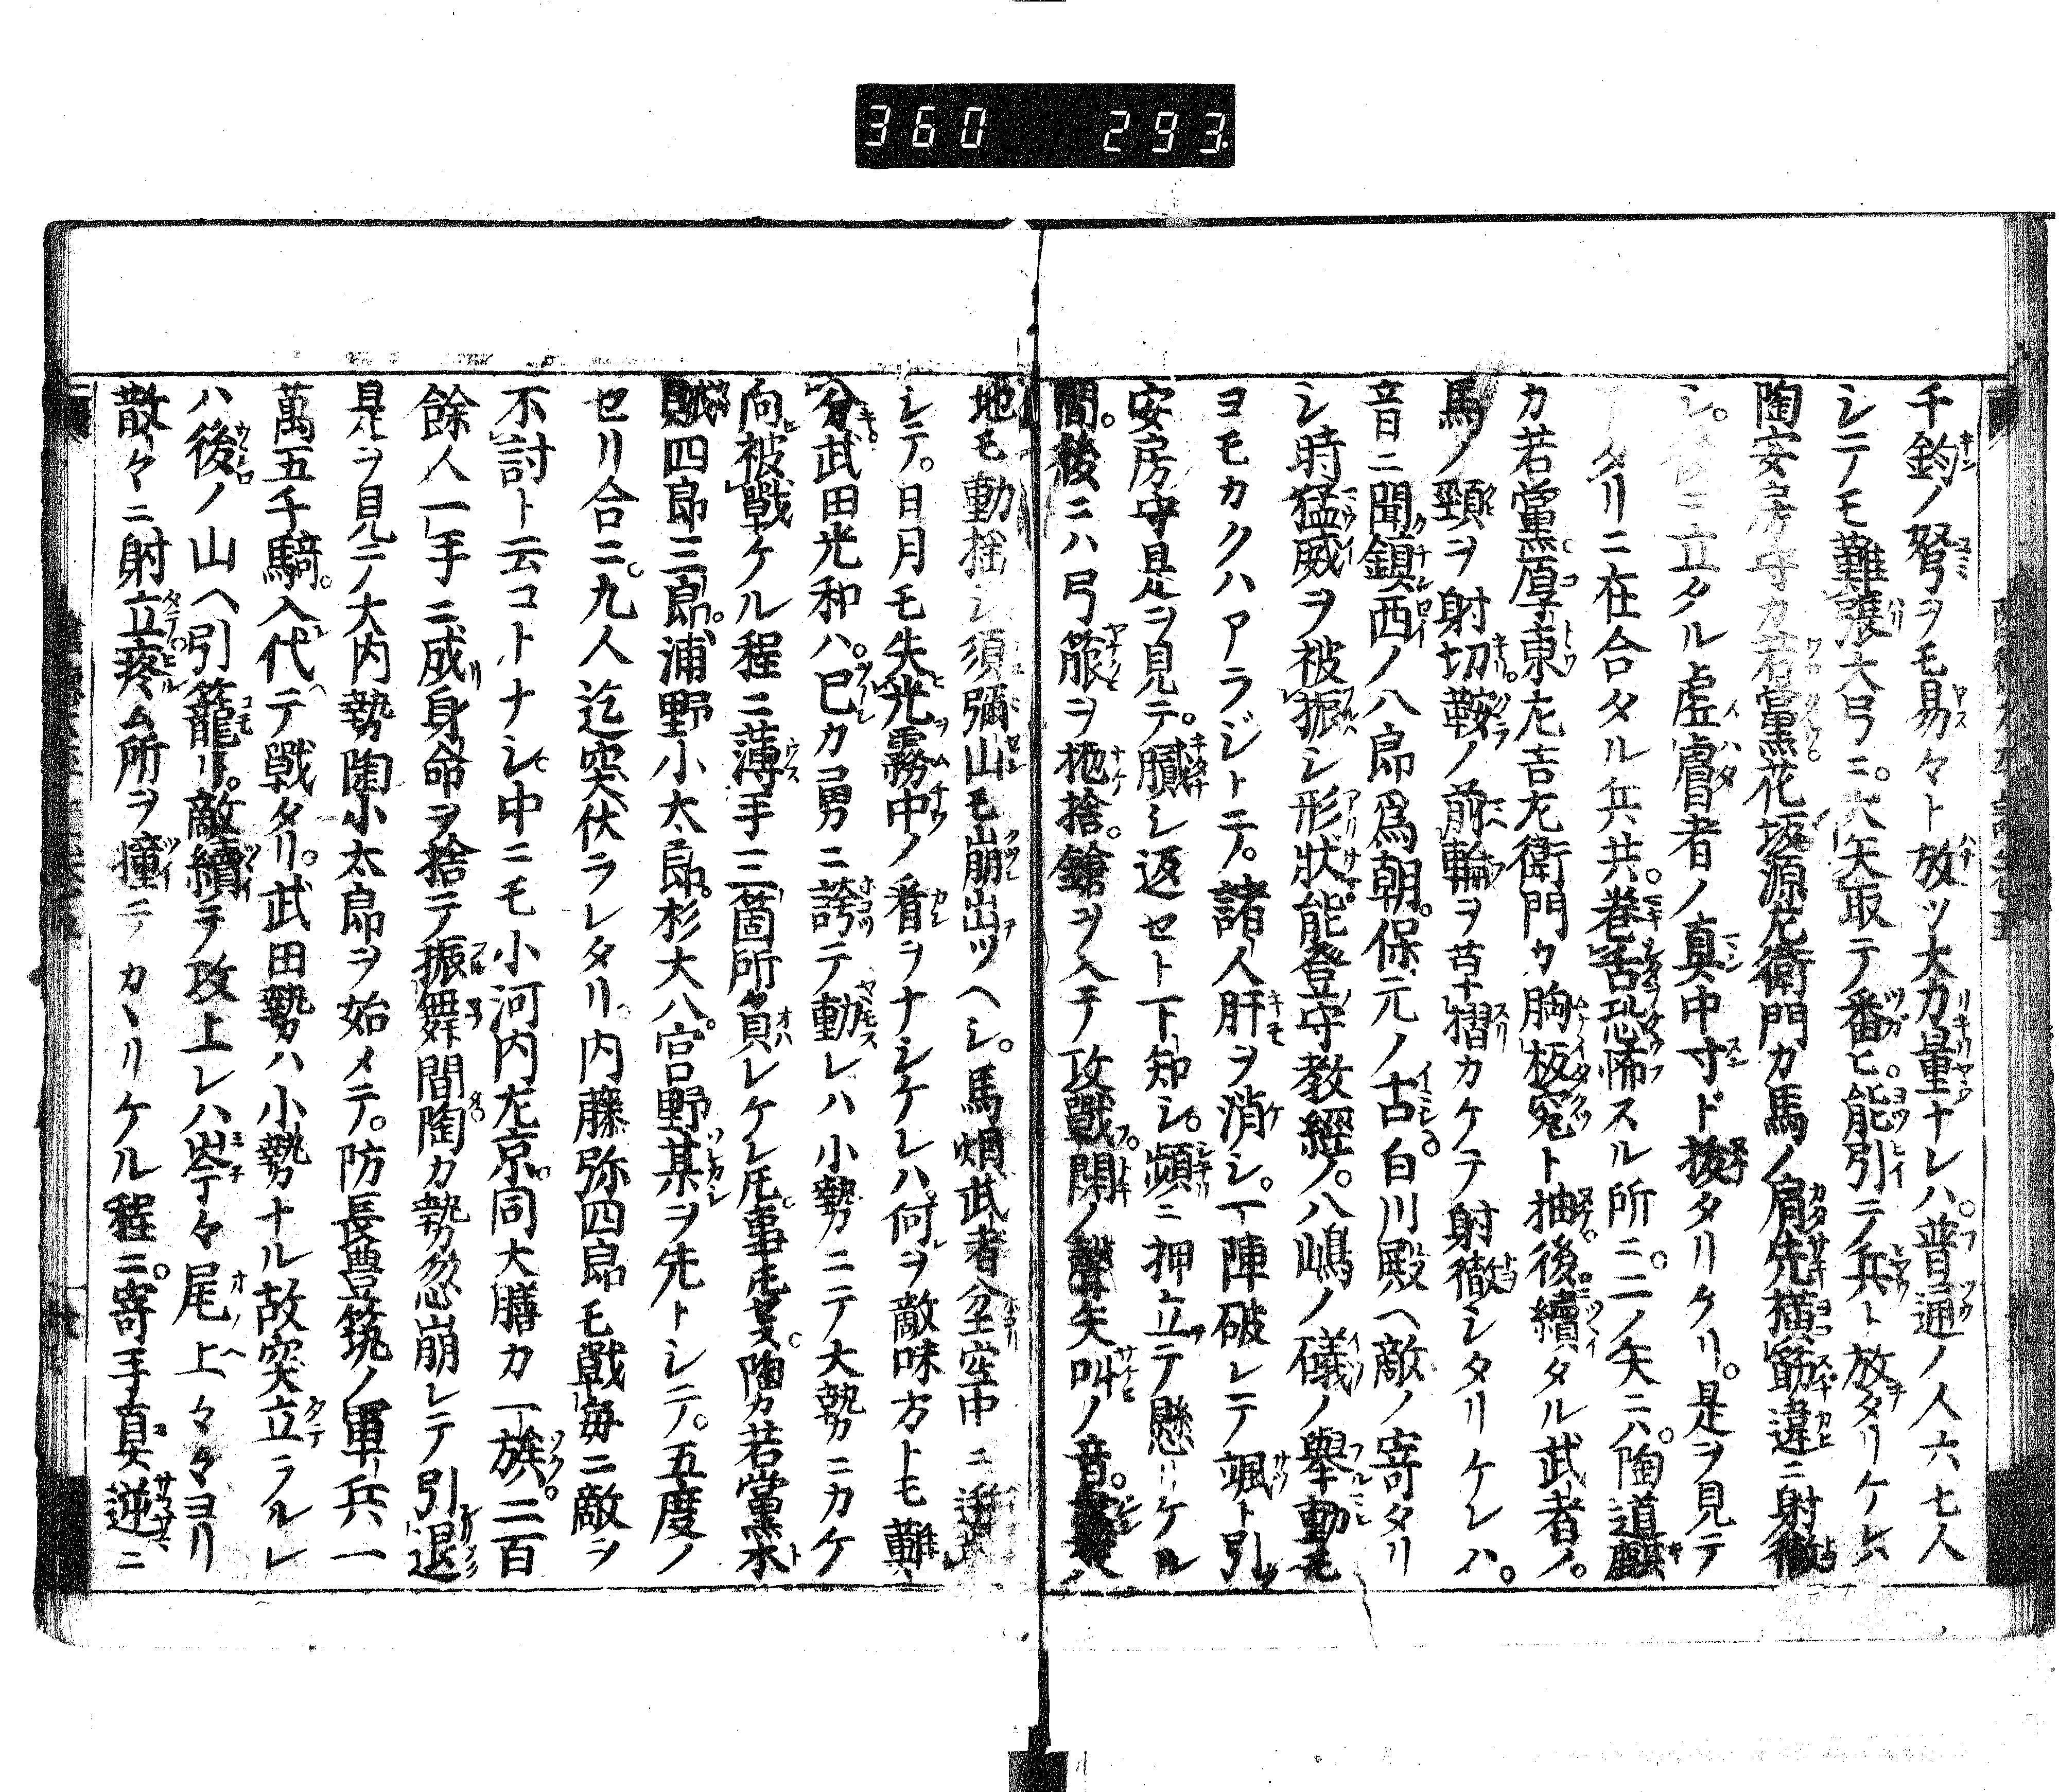 360 293
千鈞ノ弩ヲモ易々ト放ツ大力量ナレハ。普通ノ人六七人
シテモ難張大弓ニ。大矢取テ番ヒ。能引テ兵ト放タリケレハ
陶安房守カ若黨花坂源左衛門カ馬ノ肩先横筋違ニ射徹
シ。後ニ立タル虚膚者ノ真中寸ド抜タリケリ。是ヲ見テ
アタリニ在合タル兵共。巻舌恐怖スル所ニ。二ノ矢ニハ。陶道麒
カ若黨厚東左吉左衛門カ胸板寃ト抽。後續タル武者ノ。
馬ノ頸ヲ射切。鞍ノ前輪ヲ草摺カケテ射徹シタリケレハ。
音ニ聞鎮西ノ八郎爲朝。保元ノ古。白川殿ヘ敵ノ寄タリ
シ時猛威ヲ被振シ形狀。能登守教經ノ。八嶋ノ礒ノ舉動モ
ヨモカクハアラジトテ。諸人肝ヲ消シ。一陣破レテ颯ト引
安房守是ヲ見テ。臆シ返セト下知シ。頻ニ押立テ懸リケル
間。後ニハ弓箙ヲ抛捨。鎗ヲ入テ攻戰。閧ノ聲矢叫ノ音。
地モ動揺シ須彌山モ崩出ツヘシ。馬煙武者埃空中ニ
シテ。日月モ失光霧中ノ看ヲナシケレハ。何ヲ敵味方トモ難
分。武田光和ハ。已カ勇ニ誇テ動レハ小勢ニテ大勢ニカケ
向被戰ケル程ニ薄手三箇所負レケレ𪜈事𪜈セス陶カ若黨水
賊四郎三郎。浦野小太郎。杉大八。宮野某ヲ先トシテ。五度ノ
セリ合ニ。九人迄突伏ラレタリ内藤弥四郎モ戰毎ニ敵ヲ
不討ト云コトナシ中ニモ小河内左京。同大膳カ一族。二百
餘人一手ニ成身命ヲ捨テ振舞間陶カ勢忽崩レテ引退
是ヲ見テ大内勢陶小太郎ヲ始メテ。防長豊筑ノ軍兵一
萬五千騎。入代テ戰タリ。武田勢ハ小勢ナル故突立ラルレ
ハ後ノ山ヘ引籠リ。敵續テ攻上レハ岺々尾上々々ヨリ
散々ニ射立疼ム所ヲ撞テカヽリケル程ニ。寄手真逆ニ